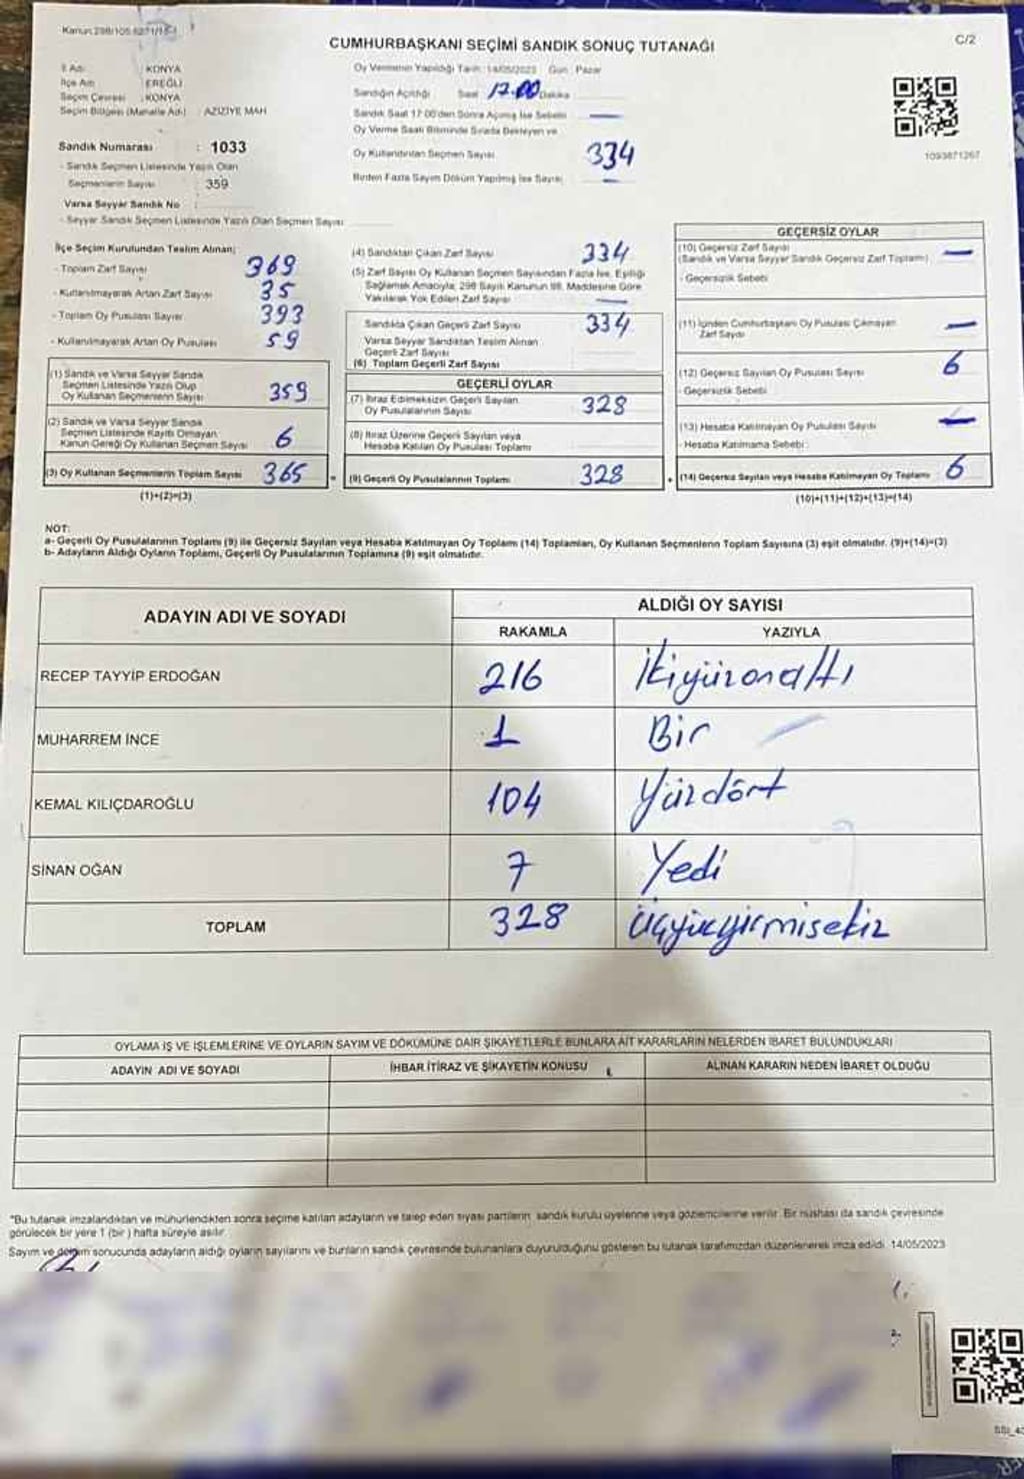 Kanun:298/105.6271/15-1
C/2
CUMHURBAŞKANI SEÇİMİ SANDIK SONUÇ TUTANAĞI
İl Adı : KONYA
İlçe Adı : EREĞLİ
Seçim Çevresi : KONYA
Seçim Bölgesi (Mahalle Adı) : AZIZIYE MAH
Sandık Numarası : 1033
- Sandık Seçmen Listesinde Yazılı Olan
Seçmenlerin Sayısı : 359
Varsa Seyyar Sandık No :
- Seyyar Sandık Seçmen Listesinde Yazılı Olan Seçmen Sayısı
Oy Vermenin Yapıldığı Tarih : 14/05/2023 Gün : Pazar
Sandığın Açıldığı Saat 17.00 Dakika
Sandık Saat 17:00'den Sonra Açılmış İse Sebebi —
Oy Verme Saati Bitiminde Sırada Bekleyen ve
Oy Kullandırılan Seçmen Sayısı 334
Birden Fazla Sayım Döküm Yapılmış İse Sayısı —
1093871267
İlçe Seçim Kurulundan Teslim Alınan;
- Toplam Zarf Sayısı 369
- Kullanılmayarak Artan Zarf Sayısı 35
- Toplam Oy Pusulası Sayısı 393
- Kullanılmayarak Artan Oy Pusulası 59
(1) Sandık ve Varsa Seyyar Sandık
Seçmen Listesinde Yazılı Olup
Oy Kullanan Seçmenlerin Sayısı 359
(2) Sandık ve Varsa Seyyar Sandık
Seçmen Listesinde Kayıtlı Olmayan
Kanun Gereği Oy Kullanan Seçmen Sayısı 6
(3) Oy Kullanan Seçmenlerin Toplam Sayısı 365
(1)+(2)=(3)
(4) Sandıktan Çıkan Zarf Sayısı 334
(5) Zarf Sayısı Oy Kullanan Seçmen Sayısından Fazla İse, Eşitliği
Sağlamak Amacıyla, 298 Sayılı Kanunun 98. Maddesine Göre
Yakılarak Yok Edilen Zarf Sayısı —
Sandıkta Çıkan Geçerli Zarf Sayısı 334
Varsa Seyyar Sandıktan Teslim Alınan
Geçerli Zarf Sayısı
(6) Toplam Geçerli Zarf Sayısı
GEÇERLİ OYLAR
(7) İtiraz Edilmeksizin Geçerli Sayılan
Oy Pusulalarının Sayısı 328
(8) İtiraz Üzerine Geçerli Sayılan veya
Hesaba Katılan Oy Pusulası Toplamı
(9) Geçerli Oy Pusulalarının Toplamı 328
GEÇERSİZ OYLAR
(10) Geçersiz Zarf Sayısı
(Sandık ve Varsa Seyyar Sandık Geçersiz Zarf Toplamı) —
- Geçersizlik Sebebi
(11) İçinden Cumhurbaşkanı Oy Pusulası Çıkmayan
Zarf Sayısı —
(12) Geçersiz Sayılan Oy Pusulası Sayısı 6
- Geçersizlik Sebebi :
(13) Hesaba Katılmayan Oy Pusulası Sayısı —
- Hesaba Katılmama Sebebi :
(14) Geçersiz Sayılan veya Hesaba Katılmayan Oy Toplamı 6
(10)+(11)+(12)+(13)=(14)
NOT:
a- Geçerli Oy Pusulalarının Toplamı (9) ile Geçersiz Sayılan veya Hesaba Katılmayan Oy Toplamı (14) Toplamları, Oy Kullanan Seçmenlerin Toplam Sayısına (3) eşit olmalıdır. (9)+(14)=(3)
b- Adayların Aldığı Oyların Toplamı, Geçerli Oy Pusulalarının Toplamına (9) eşit olmalıdır.
ADAYIN ADI VE SOYADI
ALDIĞI OY SAYISI
RAKAMLA YAZIYLA
RECEP TAYYİP ERDOĞAN 216 İkiyüzonaltı
MUHARREM İNCE 1 Bir
KEMAL KILIÇDAROĞLU 104 Yüzdört
SİNAN OĞAN 7 Yedi
TOPLAM 328 Üçyüzyirmisekiz
OYLAMA İŞ VE İŞLEMLERİNE VE OYLARIN SAYIM VE DÖKÜMÜNE DAİR ŞİKAYETLERLE BUNLARA AİT KARARLARIN NELERDEN İBARET BULUNDUKLARI
ADAYIN ADI VE SOYADI İHBAR İTİRAZ VE ŞİKAYETİN KONUSU ALINAN KARARIN NEDEN İBARET OLDUĞU
*Bu tutanak imzalandıktan ve mühürlendikten sonra seçime katılan adayların ve talep eden siyasi partilerin sandık kurulu üyelerine veya gözlemcilerine verilir. Bir nüshası da sandık çevresinde
görülecek bir yere 1 (bir) hafta süreyle asılır.
Sayım ve döküm sonucunda adayların aldığı oyların sayılarını ve bunların sandık çevresinde bulunanlara duyurulduğunu gösteren bu tutanak tarafımızdan düzenlenerek imza edildi. 14/05/2023